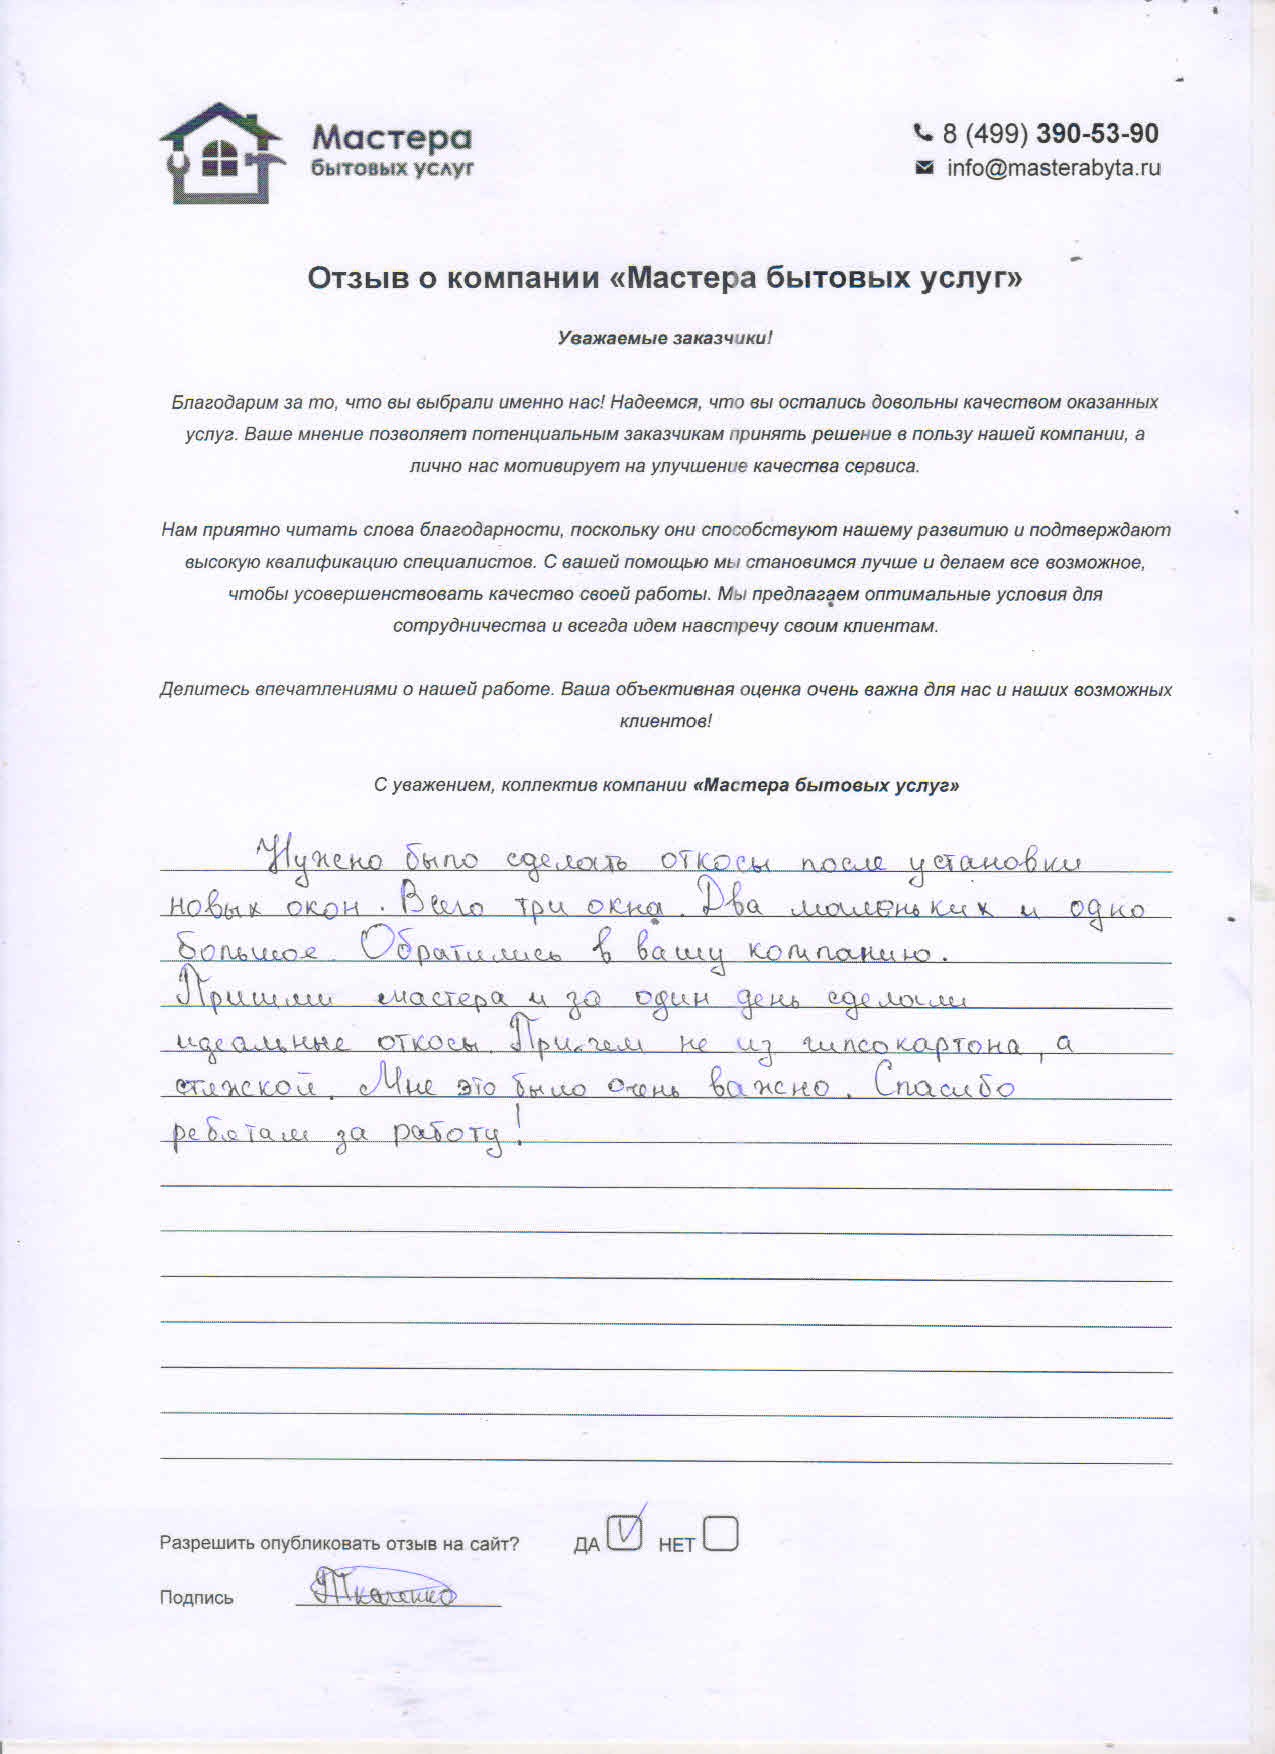 Мастера
бытовых услуг
8 (499) 390-53-90
info@masterabyta.ru
Отзыв о компании «Мастера бытовых услуг»
Уважаемые заказчики!
Благодарим за то, что вы выбрали именно нас! Надеемся, что вы остались довольны качеством оказанных
услуг. Ваше мнение позволяет потенциальным заказчикам принять решение в пользу нашей компании, а
лично нас мотивирует на улучшение качества сервиса.
Нам приятно читать слова благодарности, поскольку они способствуют нашему развитию и подтверждают
высокую квалификацию специалистов. С вашей помощью мы становимся лучше и делаем все возможное,
чтобы усовершенствовать качество своей работы. Мы предлагаем оптимальные условия для
сотрудничества и всегда идем навстречу своим клиентам.
Делитесь впечатлениями о нашей работе. Ваша объективная оценка очень важна для нас и наших возможных
клиентов!
С уважением, коллектив компании «Мастера бытовых услуг»
Нужно было сделать откосы после установки
новых окон. Всего три окна. Два маленьких и одно
большое. Обратились в вашу компанию.
Пришли мастера и за один день сделали
идеальные откосы. Причем не из гипсокартона, а
стяжкой. Мне это было очень важно. Спасибо
ребятам за работу!
Разрешить опубликовать отзыв на сайт? ДА НЕТ
Подпись Ткаченко